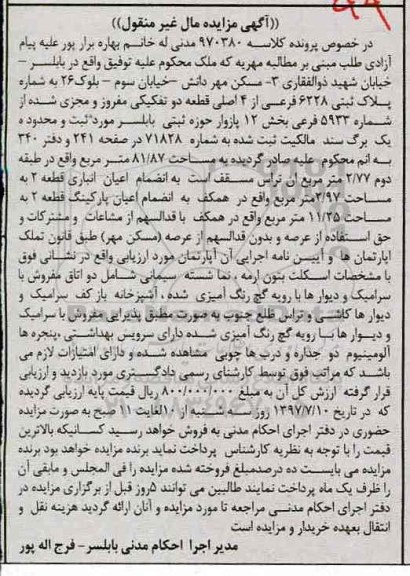 ((آگهی مزایده مال غیر منقول))
در خصوص پرونده کلاسه ۹۷۰۳۸۰ مدنی له خانم بهاره برار پور علیه پیام
آزادی طلب مبنی بر مطالبه مهریه که ملک محکوم علیه توقیف واقع در بابلسر –
خیابان شهید ذوالفقاری ۳- مسکن مهر دانش –خیابان سوم – بلوک۲۶ به شماره
پلاک ثبتی ۶۲۲۸ فرعی از ۴ اصلی قطعه دو تفکیکی مفروز و مجزی شده از
شماره ۵۹۳۳ فرعی بخش ۱۲ پازوار حوزه ثبتی بابلسر مورد ثبت و محدوده
یک برگ سند مالکیت ثبت شده به شماره ۷۱۸۲۸ در صفحه ۲۴۱ و دفتر ۳۴۰
به انم محکوم علیه صادر گردیده به مساحت ۸۱/۸۷ متر مربع واقع در طبقه
دوم ۲/۷۷ متر مربع ان تراس مسقف است به انضمام اعیان انباری قطعه ۲ به
مساحت ۲/۹۷متر مربع واقع در همکف به انضمام اعیان پارکینگ قطعه ۲ به
مساحت ۱۱/۲۵ متر مربع واقع در همکف با قدالسهم از مشاعات و مشترکات و
حق استفاده از عرصه و بدون قدالسهم از عرصه (مسکن مهر) طبق قانون تملک
اپارتمان ها و آیین نامه اجرایی آن آپارتمان مورد ارزیابی واقع در نشانی فوق
با مشخصات اسکلت بتون ارمه ، نما شسته سیمانی شامل دو اتاق مفروش با
سرامیک و دیوار ها با رویه گچ رنگ آمیزی شده ، آشپزخانه باز کف سرامیک و
دیوار ها کاشی و تراس ظلع جنوب به صورت مطبق پذیرایی مفروش با سرامیک
و دیوار ها با رویه گچ رنگ آمیزی شده دارای سرویس بهداشتی ،پنجره ها
آلومینیوم دو جداره و درب ها چوبی مشاهده شده و دارای امتیازات لازم می
باشد که مراتب فوق توسط کارشناس رسمی دادگستری مورد بازدید و ارزیابی
قرار گرفته ارزش کل آن به مبلغ ۸۰۰/۰۰۰/۰۰۰ ریال قیمت پایه ارزیابی گردیده
که در تاریخ ۱۳۹۷/۷/۱۰ روز سه شنبه از ۱۰ لغایت ۱۱ صبح به صورت مزایده
حضوری در دفتر اجرای احکام مدنی به فروش خواهد رسید کسانیکه بالاترین
قیمت را با توجه به نظریه کارشناس پرداخت نماید برنده مزایده خواهد بود برنده
مزایده می بایست ده درصدمبلغ فروخته شده مزایده را فی المجلس و مابقی آن
را ظرف یک ماه پرداخت نمایند طالبین می توانند ۵روز قبل از برگزاری مزایده در
دفتر اجرای احکام مدنی مراجعه تا مورد مزایده و آنان ارائه گردید هزینه نقل و
انتقال بعهده خریدار و مزایده است
مدیر اجرا احکام مدنی بابلسر- فرج اله پور